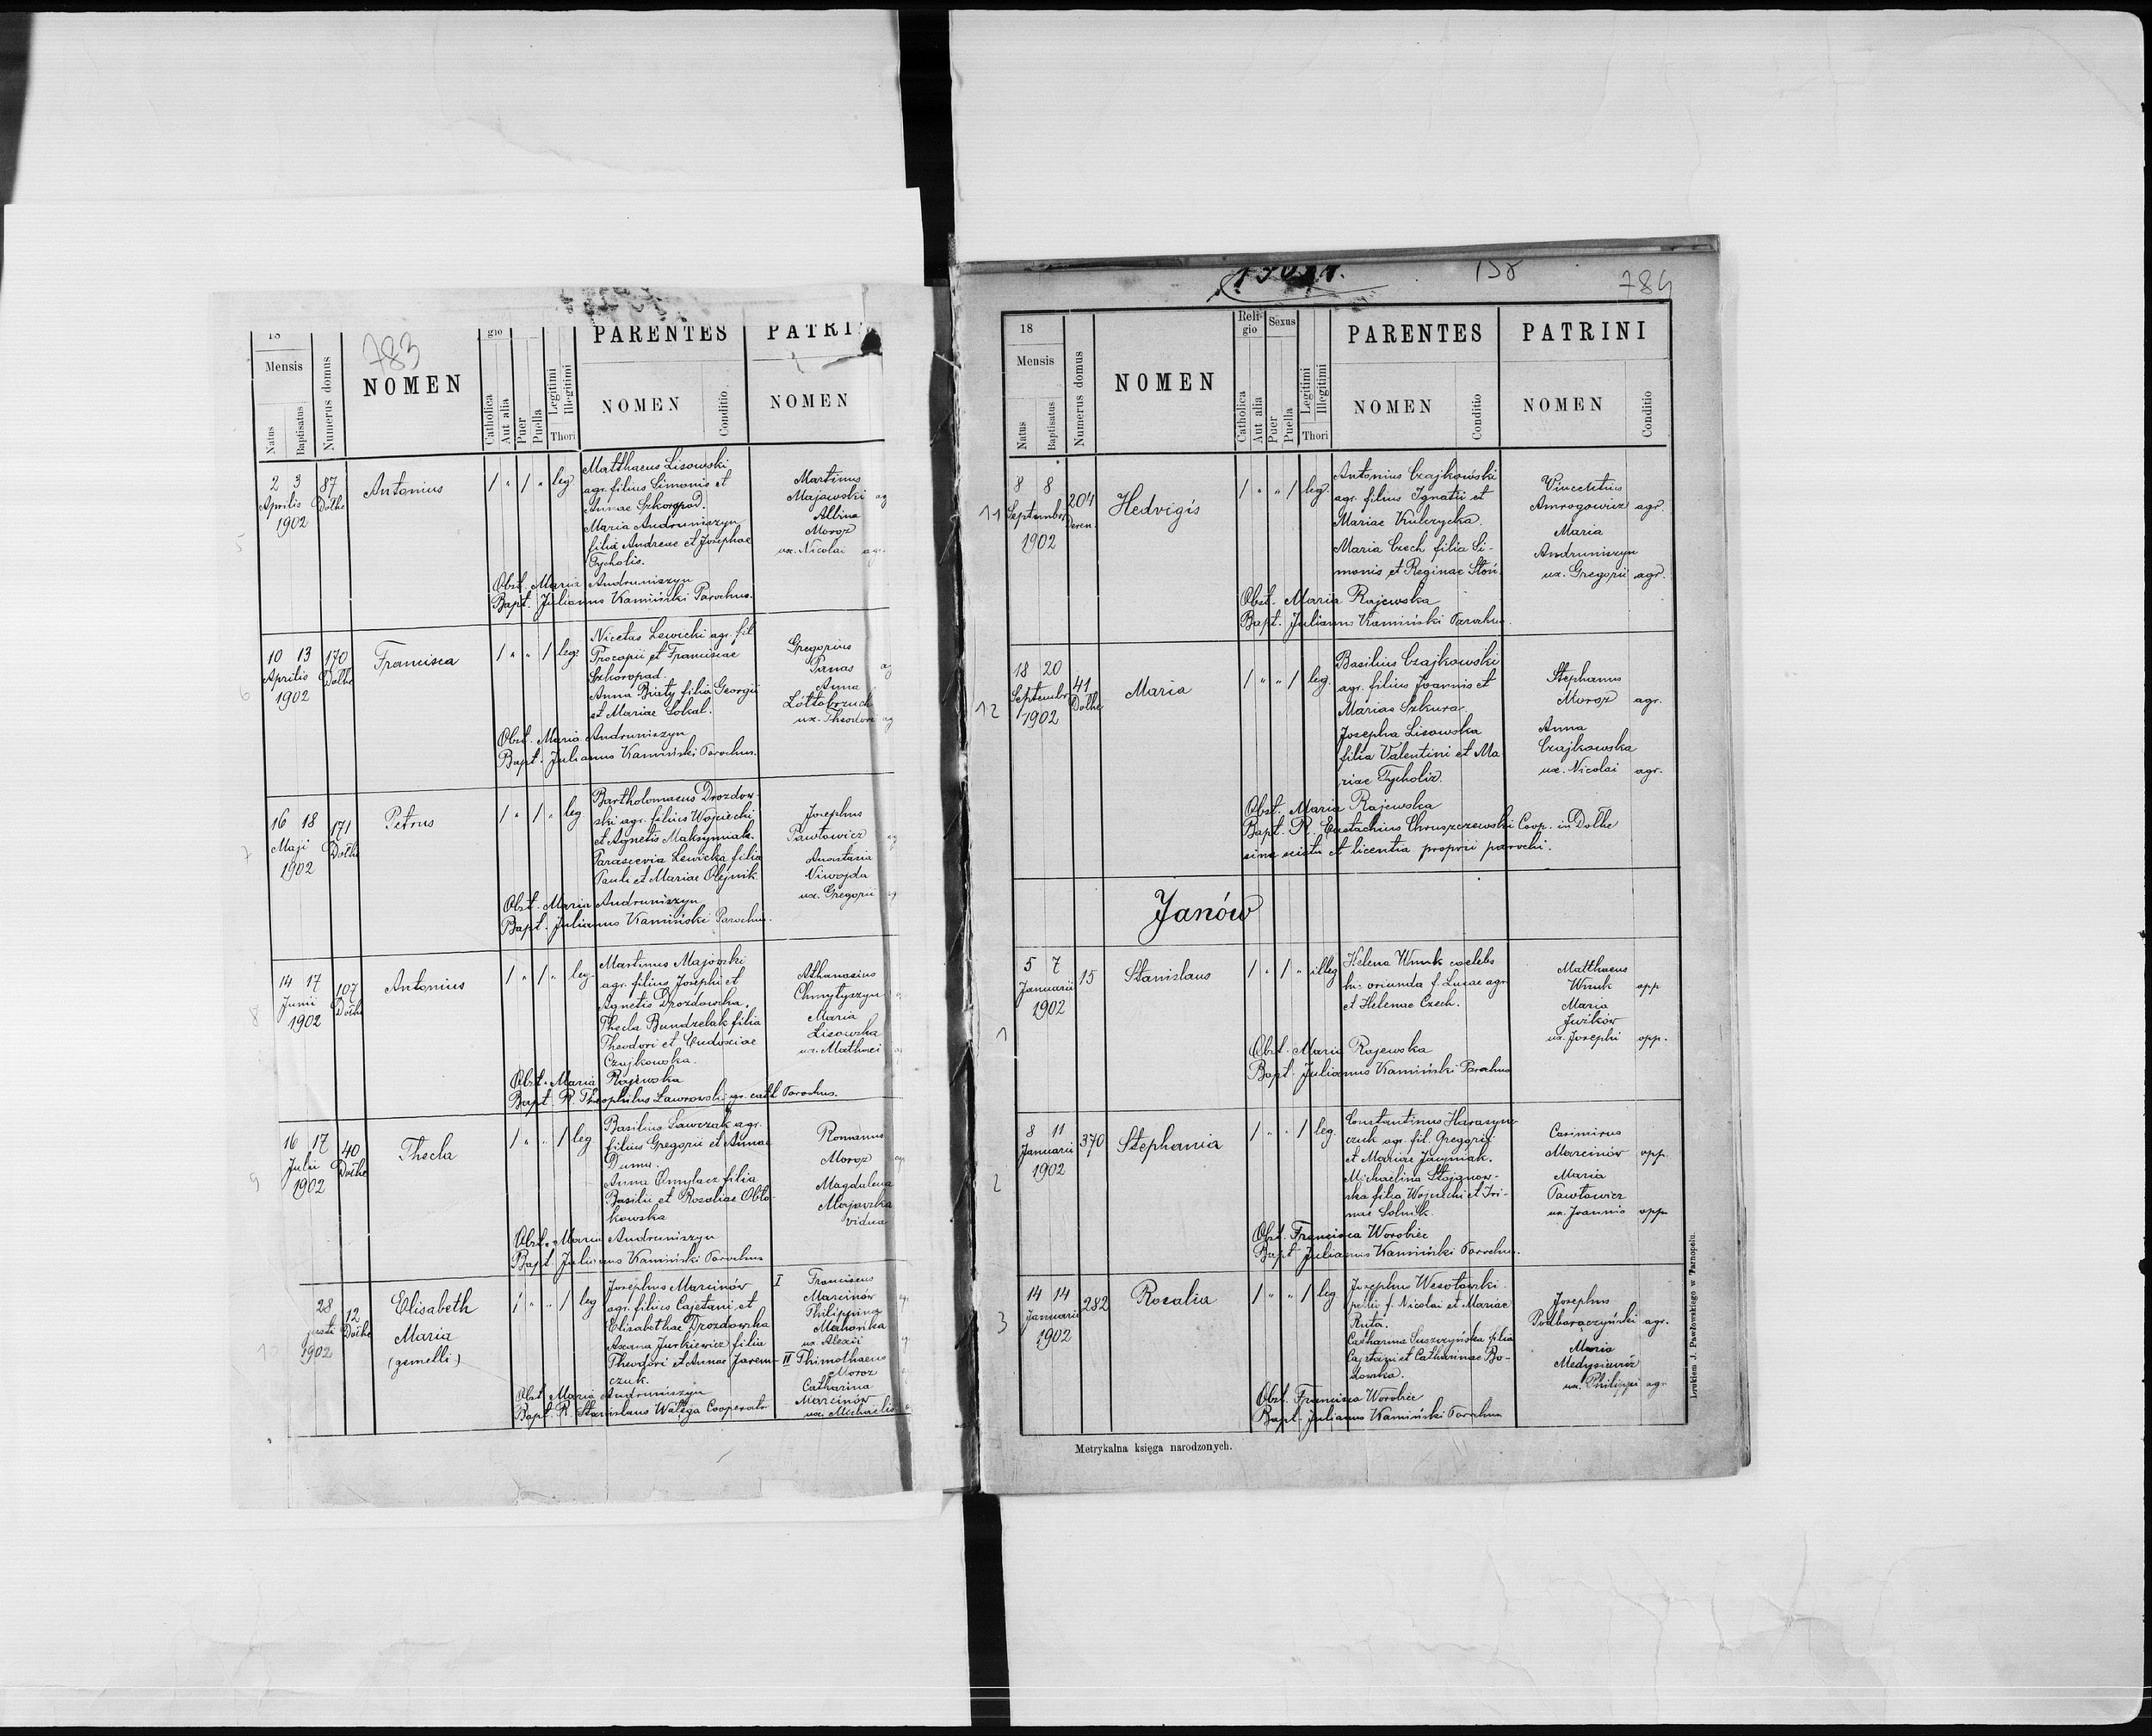 783
18
Mensis
Natus
Baptisatus
Numerus domus
NOMEN
gio
Catholica
Aut alia
Puer
Puella
Legitimi
Illegitimi
Thori
PARENTES
NOMEN
Conditio
PATRI
NOMEN
5
2 3
Aprilis
1902
87
Dołhe
Antonius
1 " 1 " leg
Matthaeus Lisowski
agr. filius Simonis et
Annae Szkoropad.
Maria Andruniszyn
filia Andreae et Josephae
Tycholis.
Martinus
Majewski ag
Albina
Moroz
ux. Nicolai agr.
Obst. Maria Andruniszyn
Bapt. Julianus Kamiński Parochus.
6
10 13
Aprilis
1902
170
Dołhe
Francisca
1 " " 1 leg.
Nicetas Lewicki agr. fil
Procopii et Franciscae
Szkoropad.
Anna Biały filia Georgii
et Mariae Sokal.
Gregorius
Panas ag
Anna
ux. Theodori ag
Obst. Maria Andruniszyn
Bapt. Julianus Kamiński Parochus.
7
16 18
Maji
1902
171
Dołhe
Petrus
1 " 1 " leg
Bartholomaeus Drozdow-
ski agr. filius Wojciechi
et Agnetis Maksymiak.
Parascevia Lewicka filia
Pauli et Mariae Olejnik.
Josephus
Pawłowicz ag
Anastasia
Niwojda
ux. Gregorii ag
Obst. Maria Andruniszyn
Bapt. Julianus Kamiński Parochus.
8
14 17
Junii
1902
107
Dołhe
Antonius
1 " 1 " leg
Martinus Majowski
agr. filius Josephi et
Agnetis Drozdowska.
Thecla Bundzelak filia
Theodori et Eudoxiae
Czajkowska.
Athanasius
Chmytyszyn
Maria
Lisowska
ux. Mathaei
Obst. Maria Rajewska
Bapt. R. Theophilus Lawrowski gr. cath Parochus.
9
16 17
Julii
1902
40
Dołhe
Thecla
1 " " 1 leg
Basilius Sawczak agr.
filius Gregorii et Annae
Duma.
Anna Omylacz filia
Basilii et Rosaliae Obło-
kowska
Romanus
Moroz
Magdalena
Majowska
vidua
Obst. Maria Andruniszyn
Bapt. Julianus Kamiński Parochus
10
28
1902
12
Dołhe
Elisabeth
Maria
(gemelli)
1 " " 1 leg
Josephus Marcinów
agr. filius Cajetani et
Elisabethae Drozdowska
Axana Jurkiewicz filia
Theodori et Annae Jarem-
czuk.
I Franciscus
Marcinów
Philippina
ux. Alexii
II Thimothaeus
Moroz
Catharina
Marcinów
ux. Michaelis
Obst. Maria Andruniszyn
Bapt. R. Stanislaus Wałęga Cooperator
784
18
Mensis
Natus
Baptisatus
Numerus domus
NOMEN
Religio
Sexus
Catholica
Aut alia
Puer
Puella
Legitimi
Illegitimi
Thori
PARENTES
NOMEN
Conditio
PATRINI
NOMEN
Conditio
11
8 8
Septembr
1902
204
Hedvigis
1 " " 1 leg.
Antonius Czajkowski
agr. filius Ignatii et
Mariae Kulczycka.
Maria Czech filia Si-
monis et Reginae Słoń.
Vincentius
Amrogowicz agr.
Maria
Andruniszyn
ux. Gregorii agr.
Obst. Maria Rajewska
Bapt. Julianus Kamiński Parochus.
12
18 20
Septembr
1902
41
Dołhe
Maria
1 " " 1 leg.
Basilius Czajkowski
agr. filius Joannis et
Mariae Szkura.
Josepha Lisowska
filia Valentini et Ma
riae Tycholiz.
Stephanus
Moroz agr.
Anna
Czajkowska
ux. Nicolai agr.
Obst. Maria Rajewska
Bapt. R. Eustachius Chruszczewski Coop. in Dołhe
sine scitu et licentia proprii parochi.
Janów
1
5 7
Januarii
1902
15
Stanislaus
1 " 1 " illeg
Helena Wnuk caelebs
hic oriunda f. Lucae agr
et Helenae Czech.
Matthaeus
Wnuk opp
Maria
ux. Josephi opp.
Obst. Maria Rajewska
Bapt. Julianus Kamiński Parochus
2
8 11
Januarii
1902
370
Stephania
1 " " 1 leg.
Constantinus Harasym-
czuk agr. fil. Gregorii
et Mariae Jacyniak.
Michaelina Stojanow-
ska filia Wojciechi et Iri-
nae Solnik.
Casimirus
Marcinów opp.
Maria
Pawłowicz
ux. Joannis opp
Obst. Francisca Worobiec
Bapt Julianus Kamiński Parochus.
3
14 14
Januarii
1902
282
Rosalia
1 " " 1 leg
Josephus Wesołowski
f. Nicolai et Mariae
Ruta.
Catharina Suszczyńska filia
Cajetani et Catharinae Bo-
dowska.
Josephus
Podhoraczyński agr.
Maria
ux. Philippi agr
Obst. Francisca Worobiec
Bapt. Julianus Kamiński Parochus
Metrykalna księga narodzonych.
Drukiem J. Pawłowskiego w Tarnopolu.